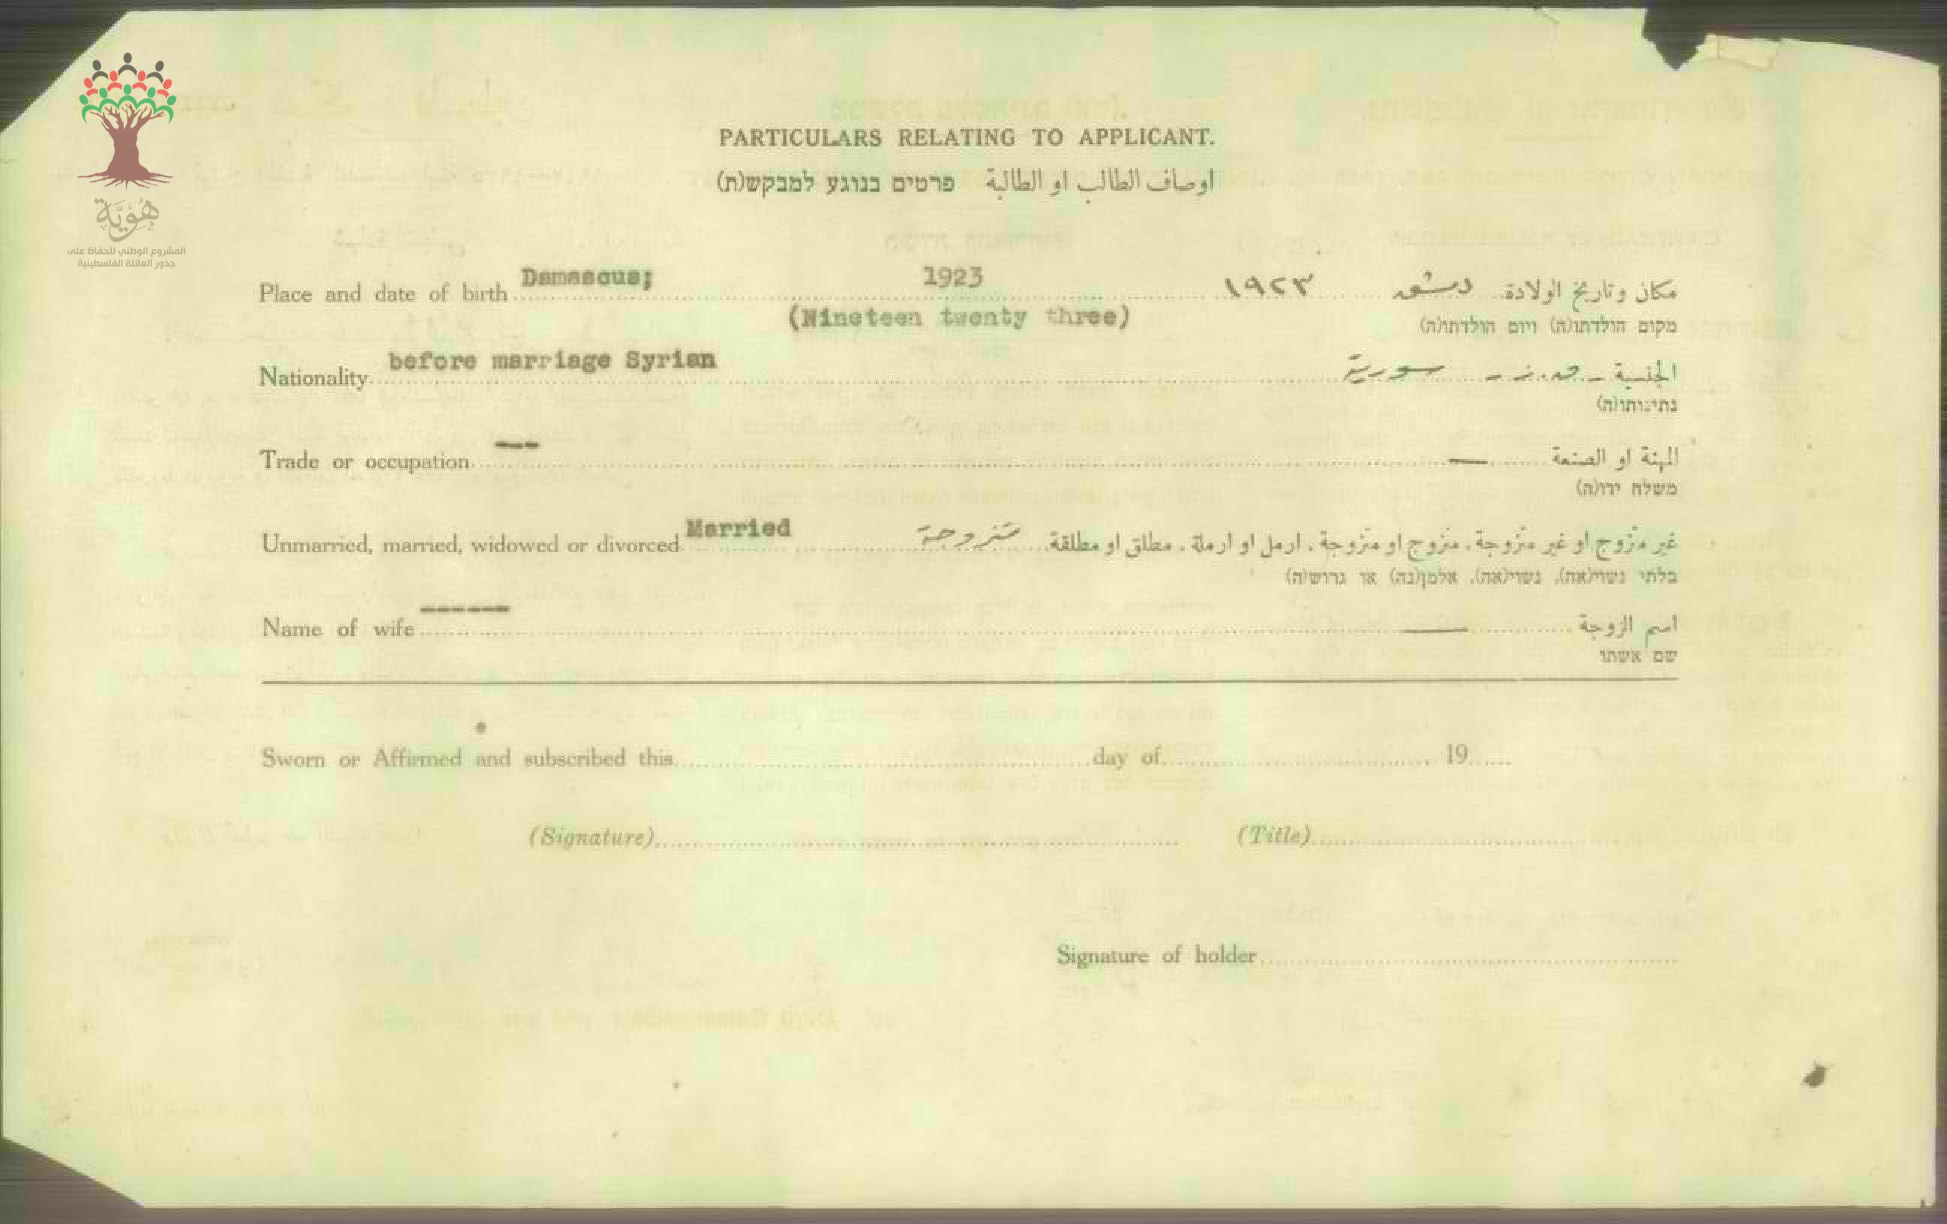 هُويَّة
المشروع الوطني للحفاظ على
جذور العائلة الفلسطينية
PARTICULARS RELATING TO APPLICANT.
اوصاف الطالب او الطالبة פרטים בנוגע למבקש(ת)
Place and date of birth Damascus; 1923 ١٩٢٣ دمشق مكان وتاريخ الولادة
(Nineteen twenty three) מקום הולדתו(ה) ויום הולדתו(ה)
Nationality before marriage Syrian سورية الجنسية
נתינותו(ה)
Trade or occupation --- — المهنة او الصنعة
משלח ידו(ה)
Unmarried, married, widowed or divorced Married متزوجة غير متزوج او غير متزوجة، متزوج او متزوجة، ارمل او ارملة، مطلق او مطلقة
בלתי נשוי(אה), נשוי(אה), אלמן(נה) או גרוש(ה)
Name of wife ------ — اسم الزوجة
שם אשתו
Sworn or Affirmed and subscribed this day of 19
(Signature) (Title)
Signature of holder